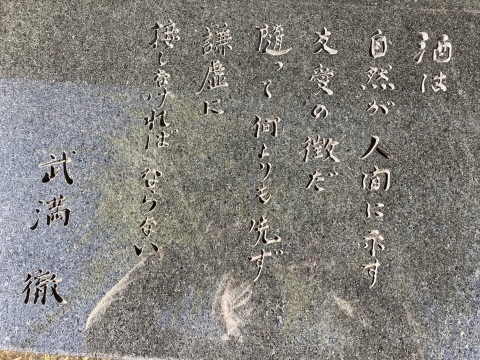 酒は
自然が人間に示す
友愛の徴だ
随って何よりも先ず
謙虚に
接しなければならない
武満徹